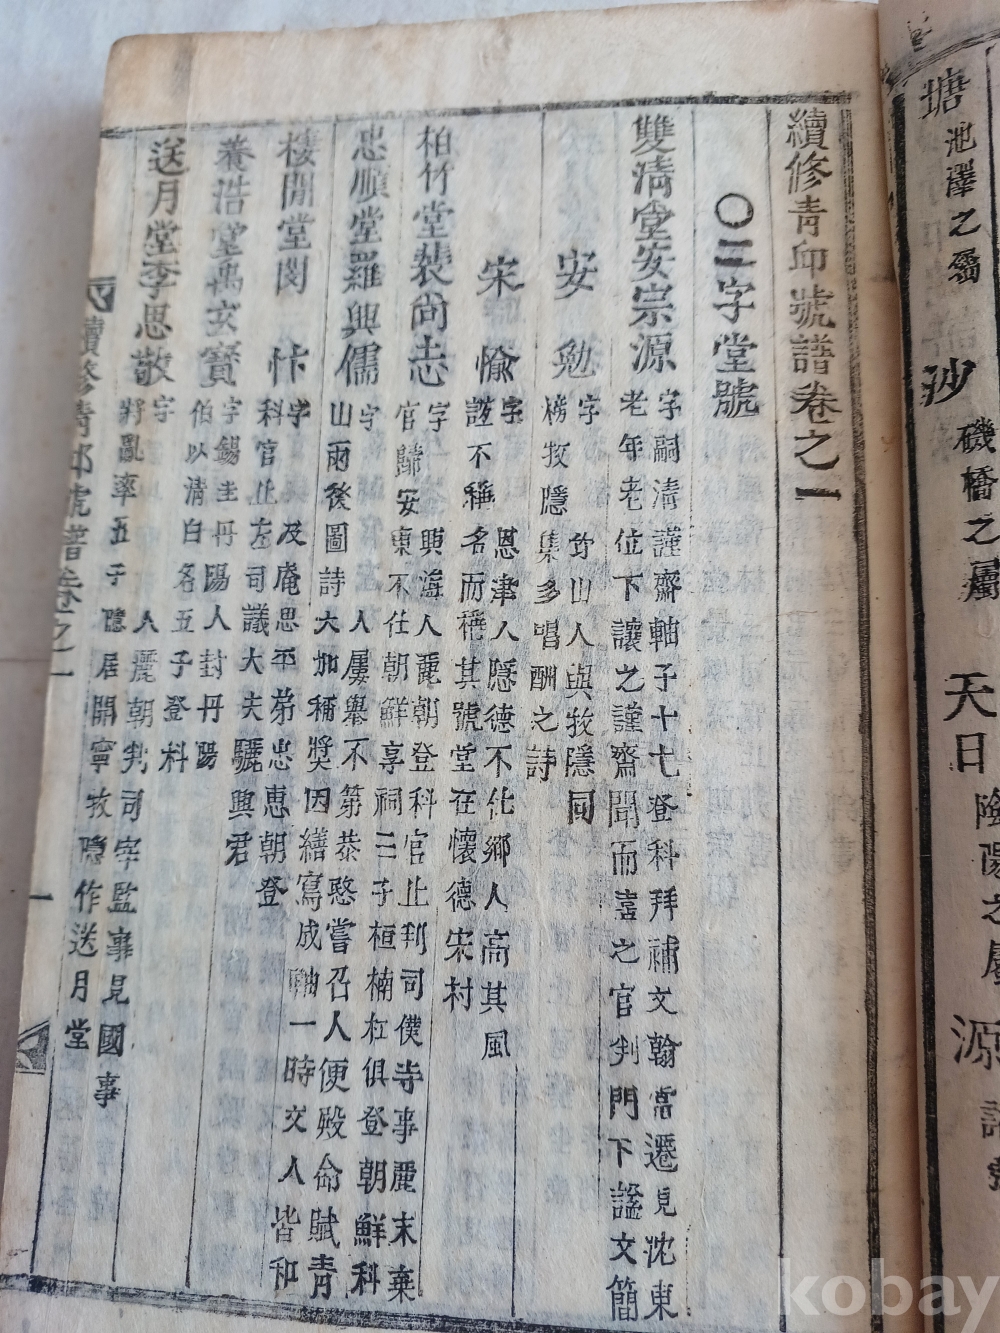 續修青邱號譜卷之一
〇二字堂號
雙清堂安宗源
字嗣清謹齋軸子十七登科拜補文翰當遷見沈東
老年老位下讓之謹齋聞而喜之官判門下諡文簡
安勉
字 竹山人與牧隱同
榜牧隱集多唱酬之詩
宋愉
字 恩津人隱德不仕鄉人高其風
誼不稱名而稱其號堂在懷德宋村
栢竹堂裴尙志
字 興海人麗朝登科官止判司僕寺事麗末棄
官歸安東不仕朝鮮享祠二子桓楠杠俱登朝鮮科
忠順堂羅興儒
字 人屢擧不第恭愍嘗召人便殿命賦靑
山雨後圖詩大加稱奬因繕寫成軸一時文人皆和
樓閒堂閔忭
字 及庵思平弟忠惠朝登
科官止左司議大夫驪興君
養浩堂禹玄寶
字錫圭丹陽人封丹陽
伯以淸白名五子登科
送月堂李思敬
字 人麗朝判司宰監事見國事
將亂率五子隱居開寧牧隱作送月堂
續修靑邱號譜卷之一
一
塘
池澤之屬
沙
磯橋之屬
天日
陰陽之屬
源
kobay